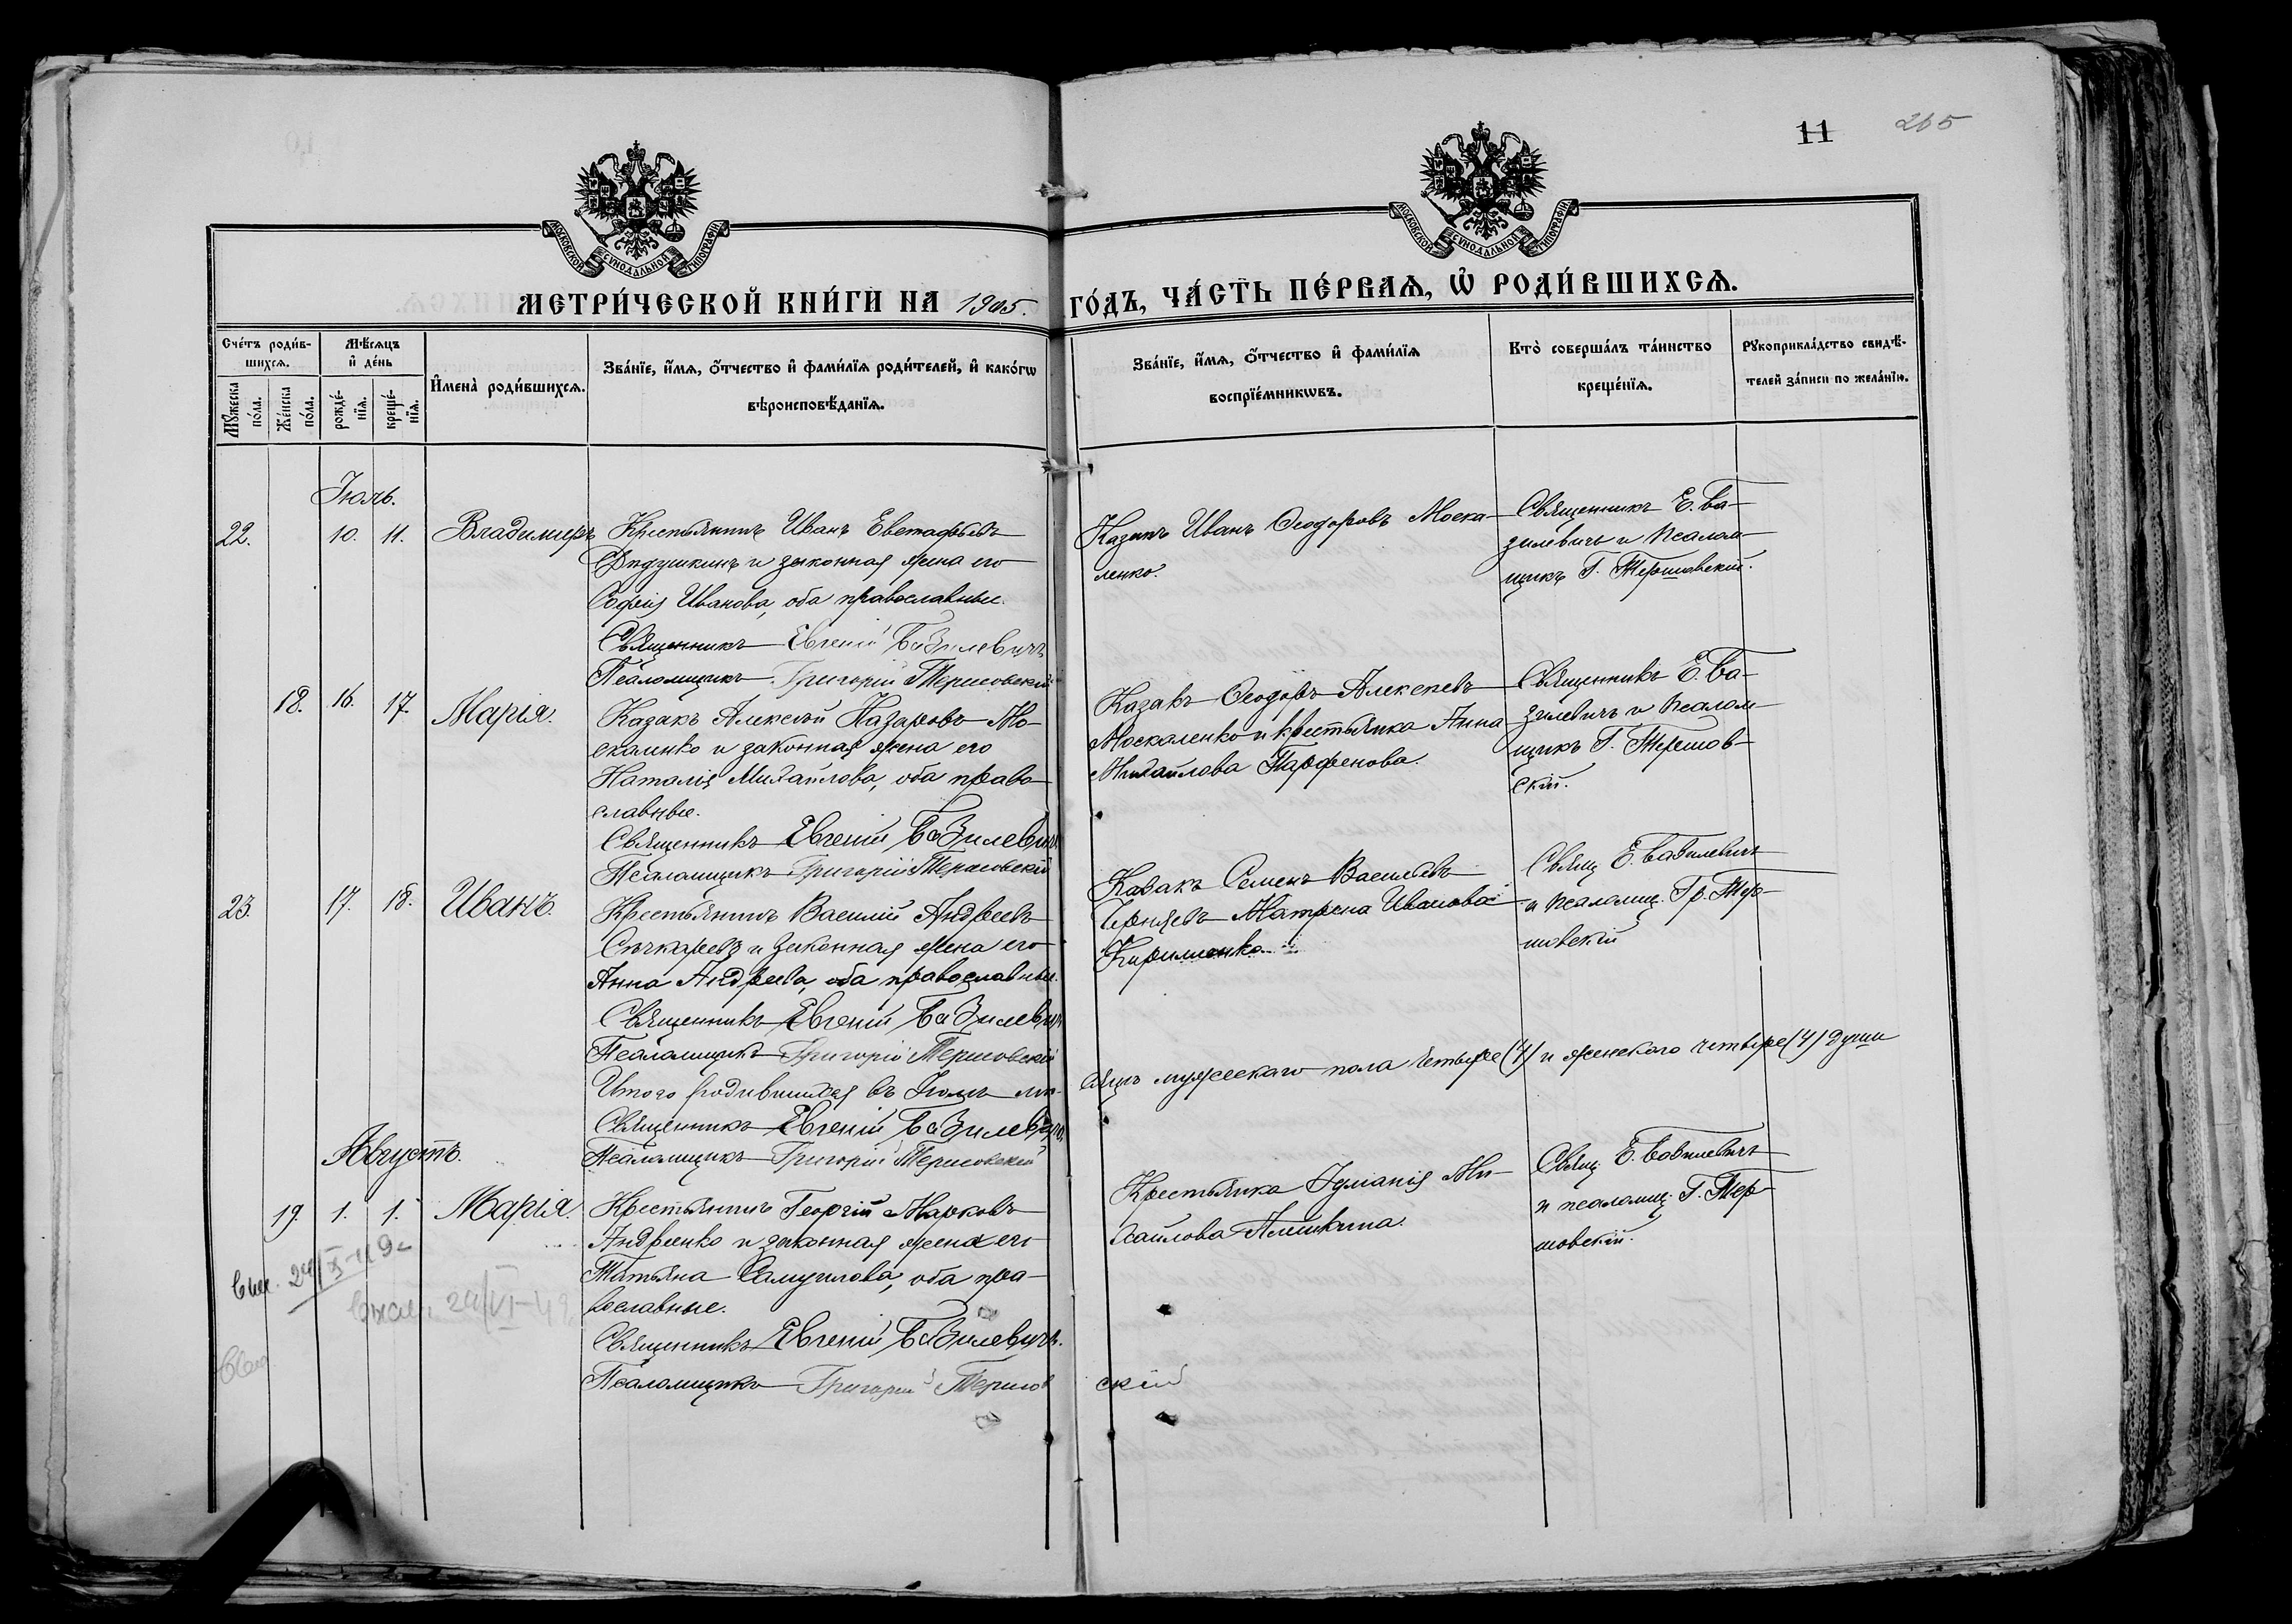 11
265
МОСКОВСКОЙ СѴНОДАЛЬНОЙ ТИПОГРАФІИ
МОСКОВСКОЙ СѴНОДАЛЬНОЙ ТИПОГРАФІИ
МЕТРИ́ЧЕСКОЙ КНИ́ГИ НА 1905. ГО́ДЪ, ЧА́СТЬ ПЕ́РВАѦ, Ѽ РОДИ́ВШИХСѦ.
Сче́тъ роди́в-
шихсѧ.
Мѣ́сѧцъ
и҆ де́нь
Мꙋ́жеска по́ла.
Же́нска по́ла.
рожде́-
нїѧ.
креще́-
нїѧ.
И҆мена̀ роди́вшихсѧ.
Зва́нїе, и҆́мѧ, ѻ҆́тчество и҆ фами́лїѧ роди́телей, и҆ како́гѡ
вѣроисповѣ́данїѧ.
Зва́нїе, и҆́мѧ, ѻ҆́тчество и҆ фами́лїѧ
воспрїе́мникѡвъ.
Кто̀ соверша́лъ та́инство
креще́нїѧ.
Рꙋкоприкла́дство свидѣ́-
телей за́писи по жела́нїю.
Іюль.
22. 10. 11. Владимиръ
Крестьянинъ Иванъ Евстафьевъ
и законная жена его
Софія Иванова, оба православные.
Священникъ Евгеній Базилевичъ
Псаломщикъ Григорій Тершовскій
Казакъ Иванъ Ѳеодоровъ Моска-
ленко.
Священникъ Е. Ба-
зилевичъ и псалом-
щикъ Г. Тершовскій.
18. 16. 17. Марія.
Казакъ Алексѣй Назаровъ Мо-
скаленко и законная жена его
Наталія Михайлова, оба право-
славные.
Священникъ Евгеній Базилевичъ
Псаломщикъ Григорій Тершовскій
Казакъ Ѳеодоръ Алексѣевъ
Москаленко и крестьянка Анна
Михайлова Парфенова.
Священникъ Е. Ба-
зилевичъ и псалом-
щикъ Г. Тершов-
скій.
23. 17. 18. Иванъ.
Крестьянинъ Василій Андреевъ
Сѣчкаревъ и законная жена его
Анна Андреева, оба православные.
Священникъ Евгеній Базилевичъ
Псаломщикъ Григорій Тершовскій
Казакъ Семенъ Васильевъ
Матрена Иванова
Кириленко
Свящ Е. Базилевичъ
и псаломщ. Гр. Тер-
шовскій
Итого родившихся въ Іюлѣ мѣ-
сяцѣ мужескаго пола четыре (4) и женскаго четыре (4) души
Священникъ Евгеній Базилевичъ
Псаломщикъ Григорій Тершовскій
Августъ.
19. 1. 1. Марія.
Крестьянинъ Георгій Марковъ
Андреенко и законная жена его
Татьяна Самуилова, оба пра-
вославные.
Священникъ Евгеній Базилевичъ.
Псаломщикъ Григорій Тершов
скій
Крестьянка Іуліанія Ми-
хайлова Алешкина.
Свящ. Е. Базилевичъ
и псаломщ. Г. Тер-
шовскій.